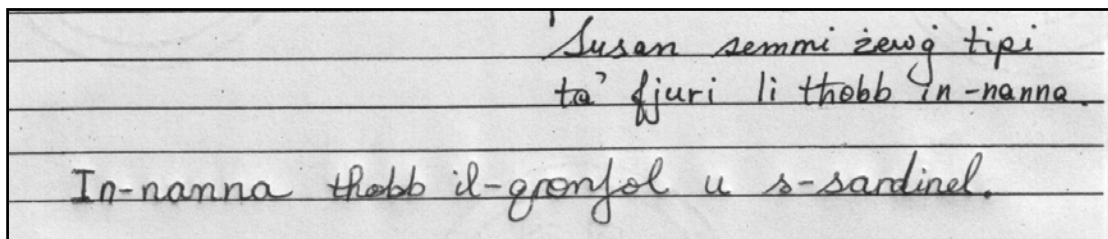 Susan semmi żewġ tipi
ta' fjuri li tħobb in-nanna.
In-nanna tħobb il-qronfol u s-sardinel.